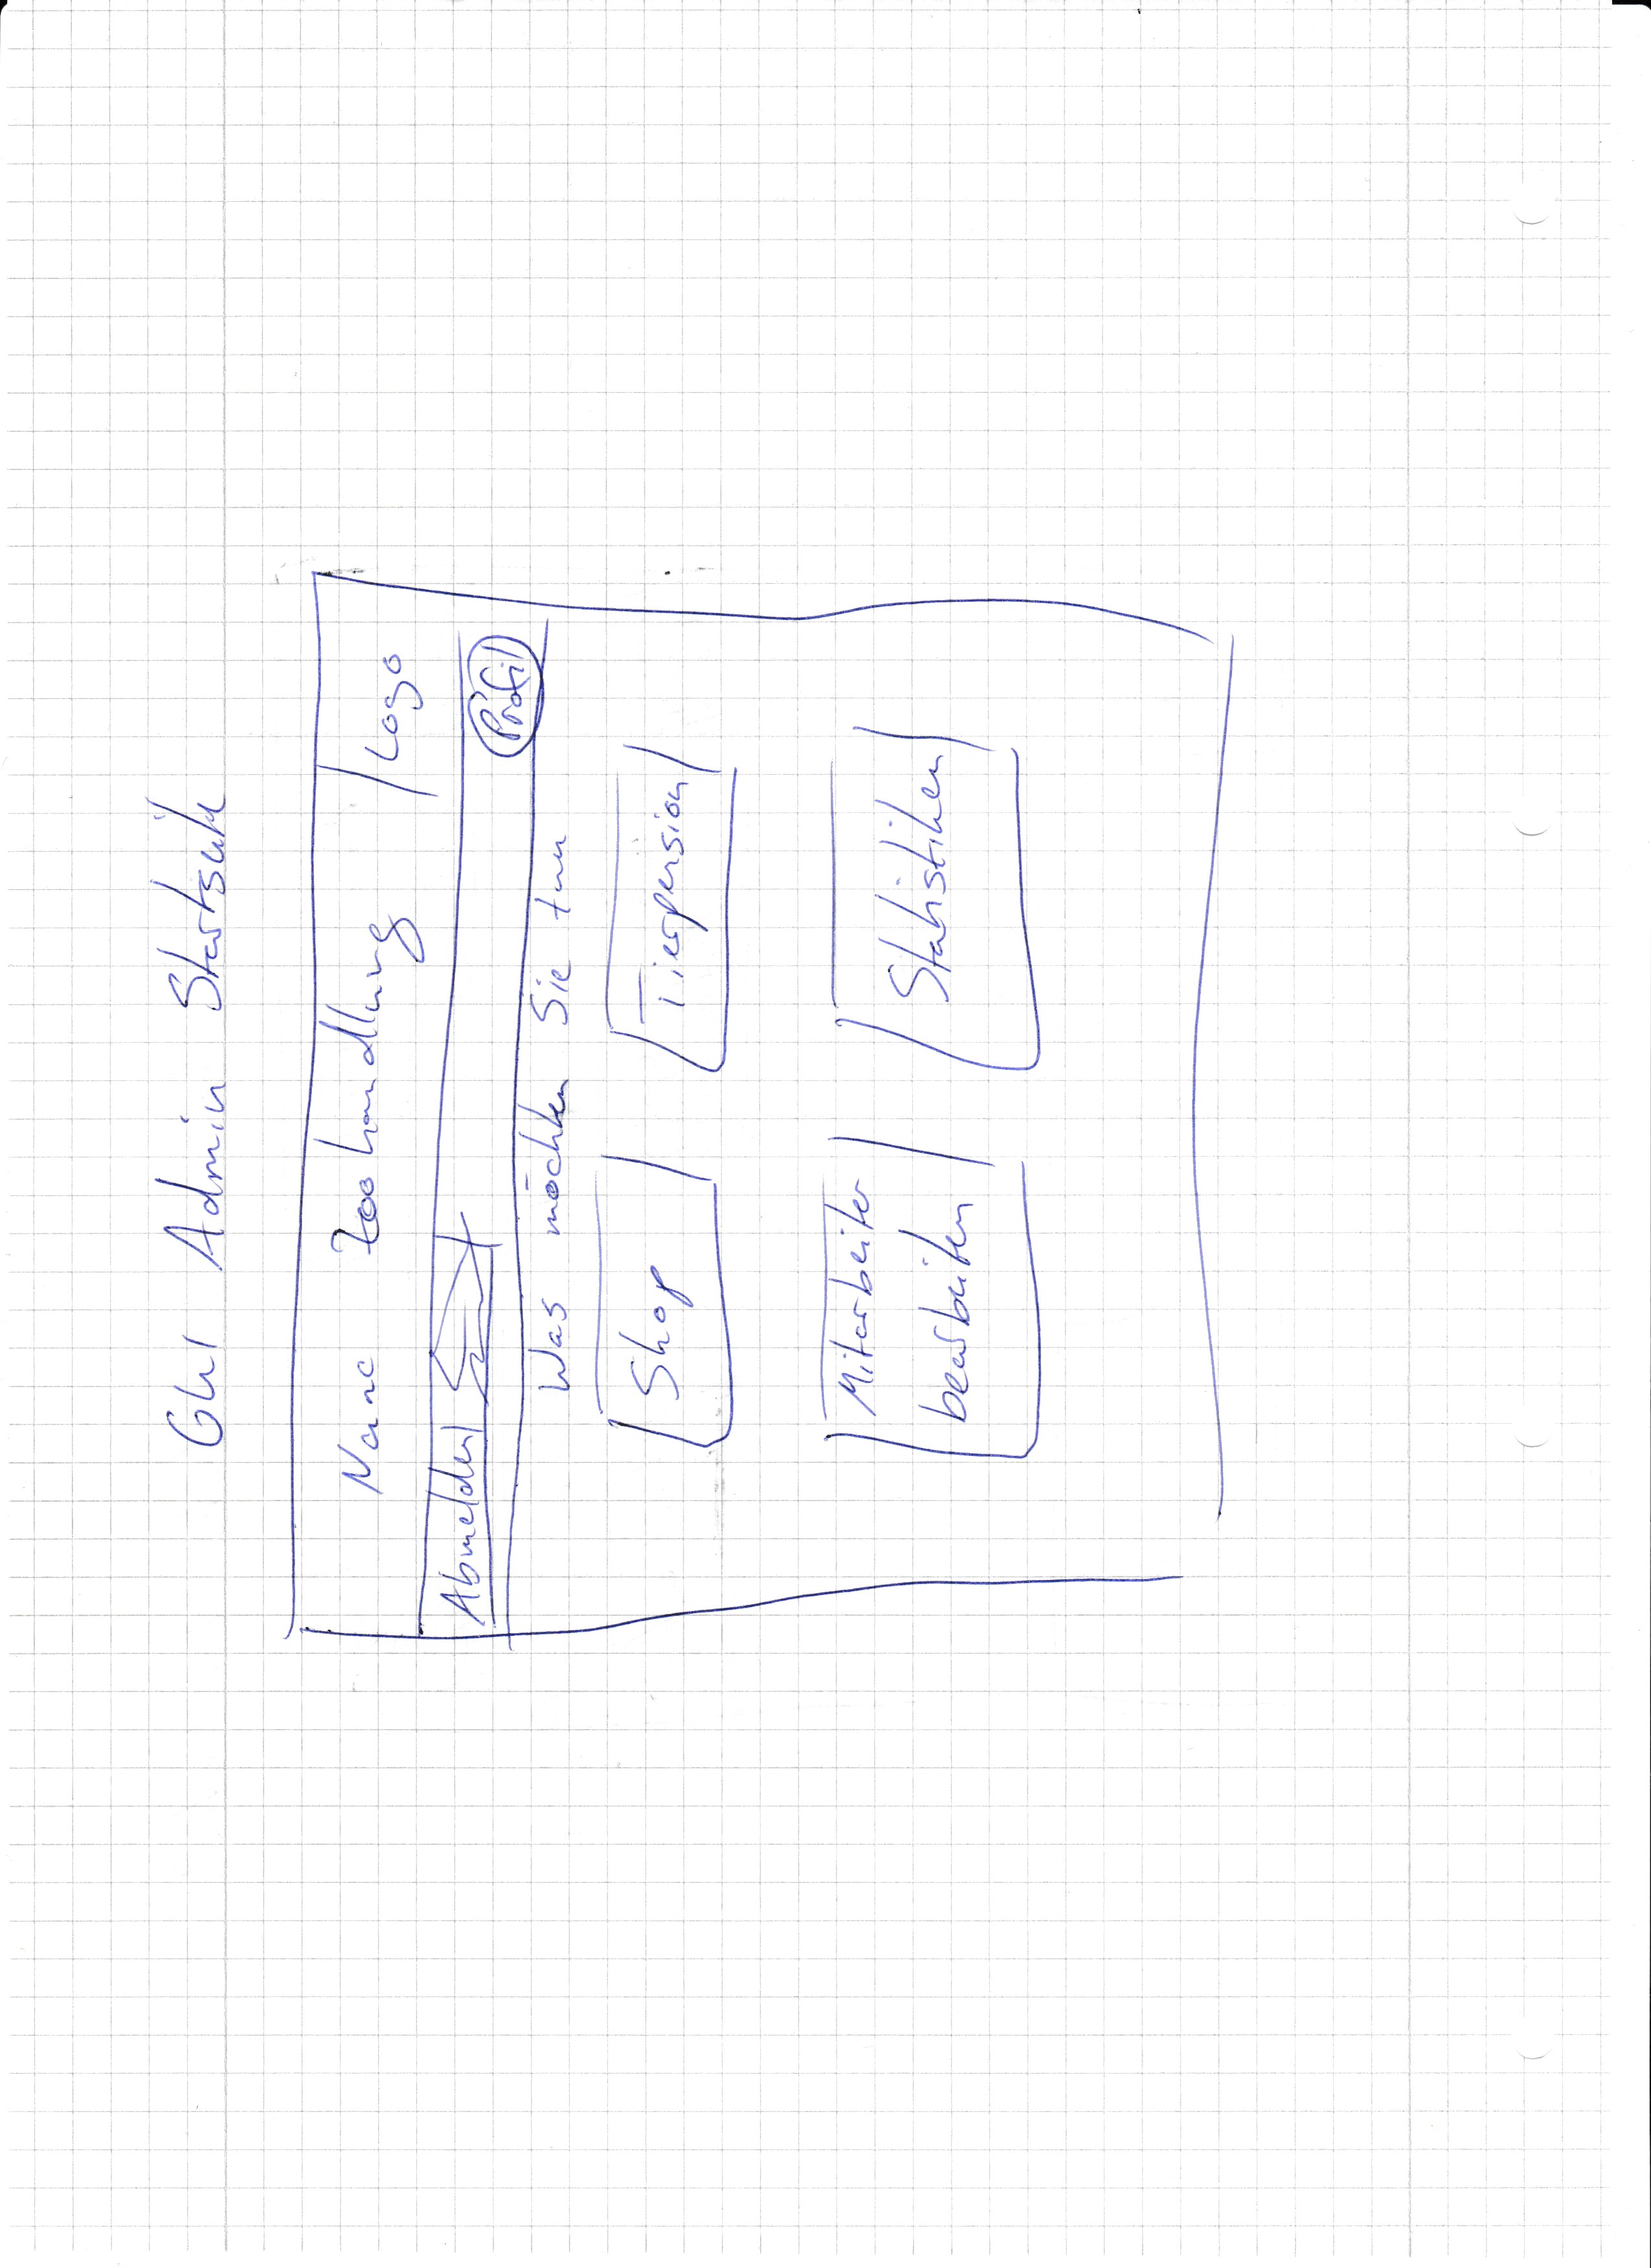 GUI Admin Startseite
Name Zoohandlung
Logo
Abmelden
Profil
Was möchten Sie tun
Shop
Tierpension
Mitarbeiter
bearbeiten
Statistiken